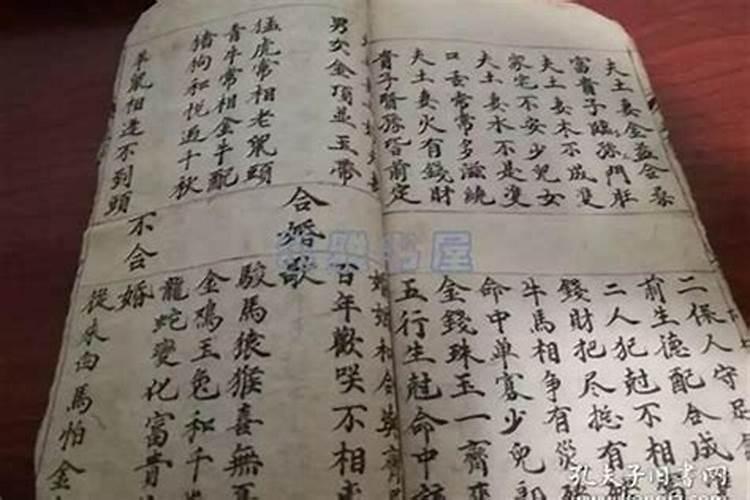 夫土妻金益合
富貴子臨孫門旺
夫土妻木不成雙
家宅不安少兒女
夫土妻水不是雙
口舌常常多滋繞
夫土妻火有錢財
貴子賢孫皆前定
二保人守足
前生德配合成
二人犯尅不相
錢財把尽總有
牛馬相争有災
命中單寡少兒郎
金錢珠玉一齊
五行生尅命中
婚姻和合
男女金頂並玉帶
百年歡咲不相
合婚歌
猛虎常相老鼠頭
青牛常相金牛配
猪狗和悦过千秋
駿馬猿猴喜無
金鳮玉兔和千
龍蛇變化富貴
不合婚
羊鼠相逢不到頭
從来白馬怕金
孔夫子旧书网